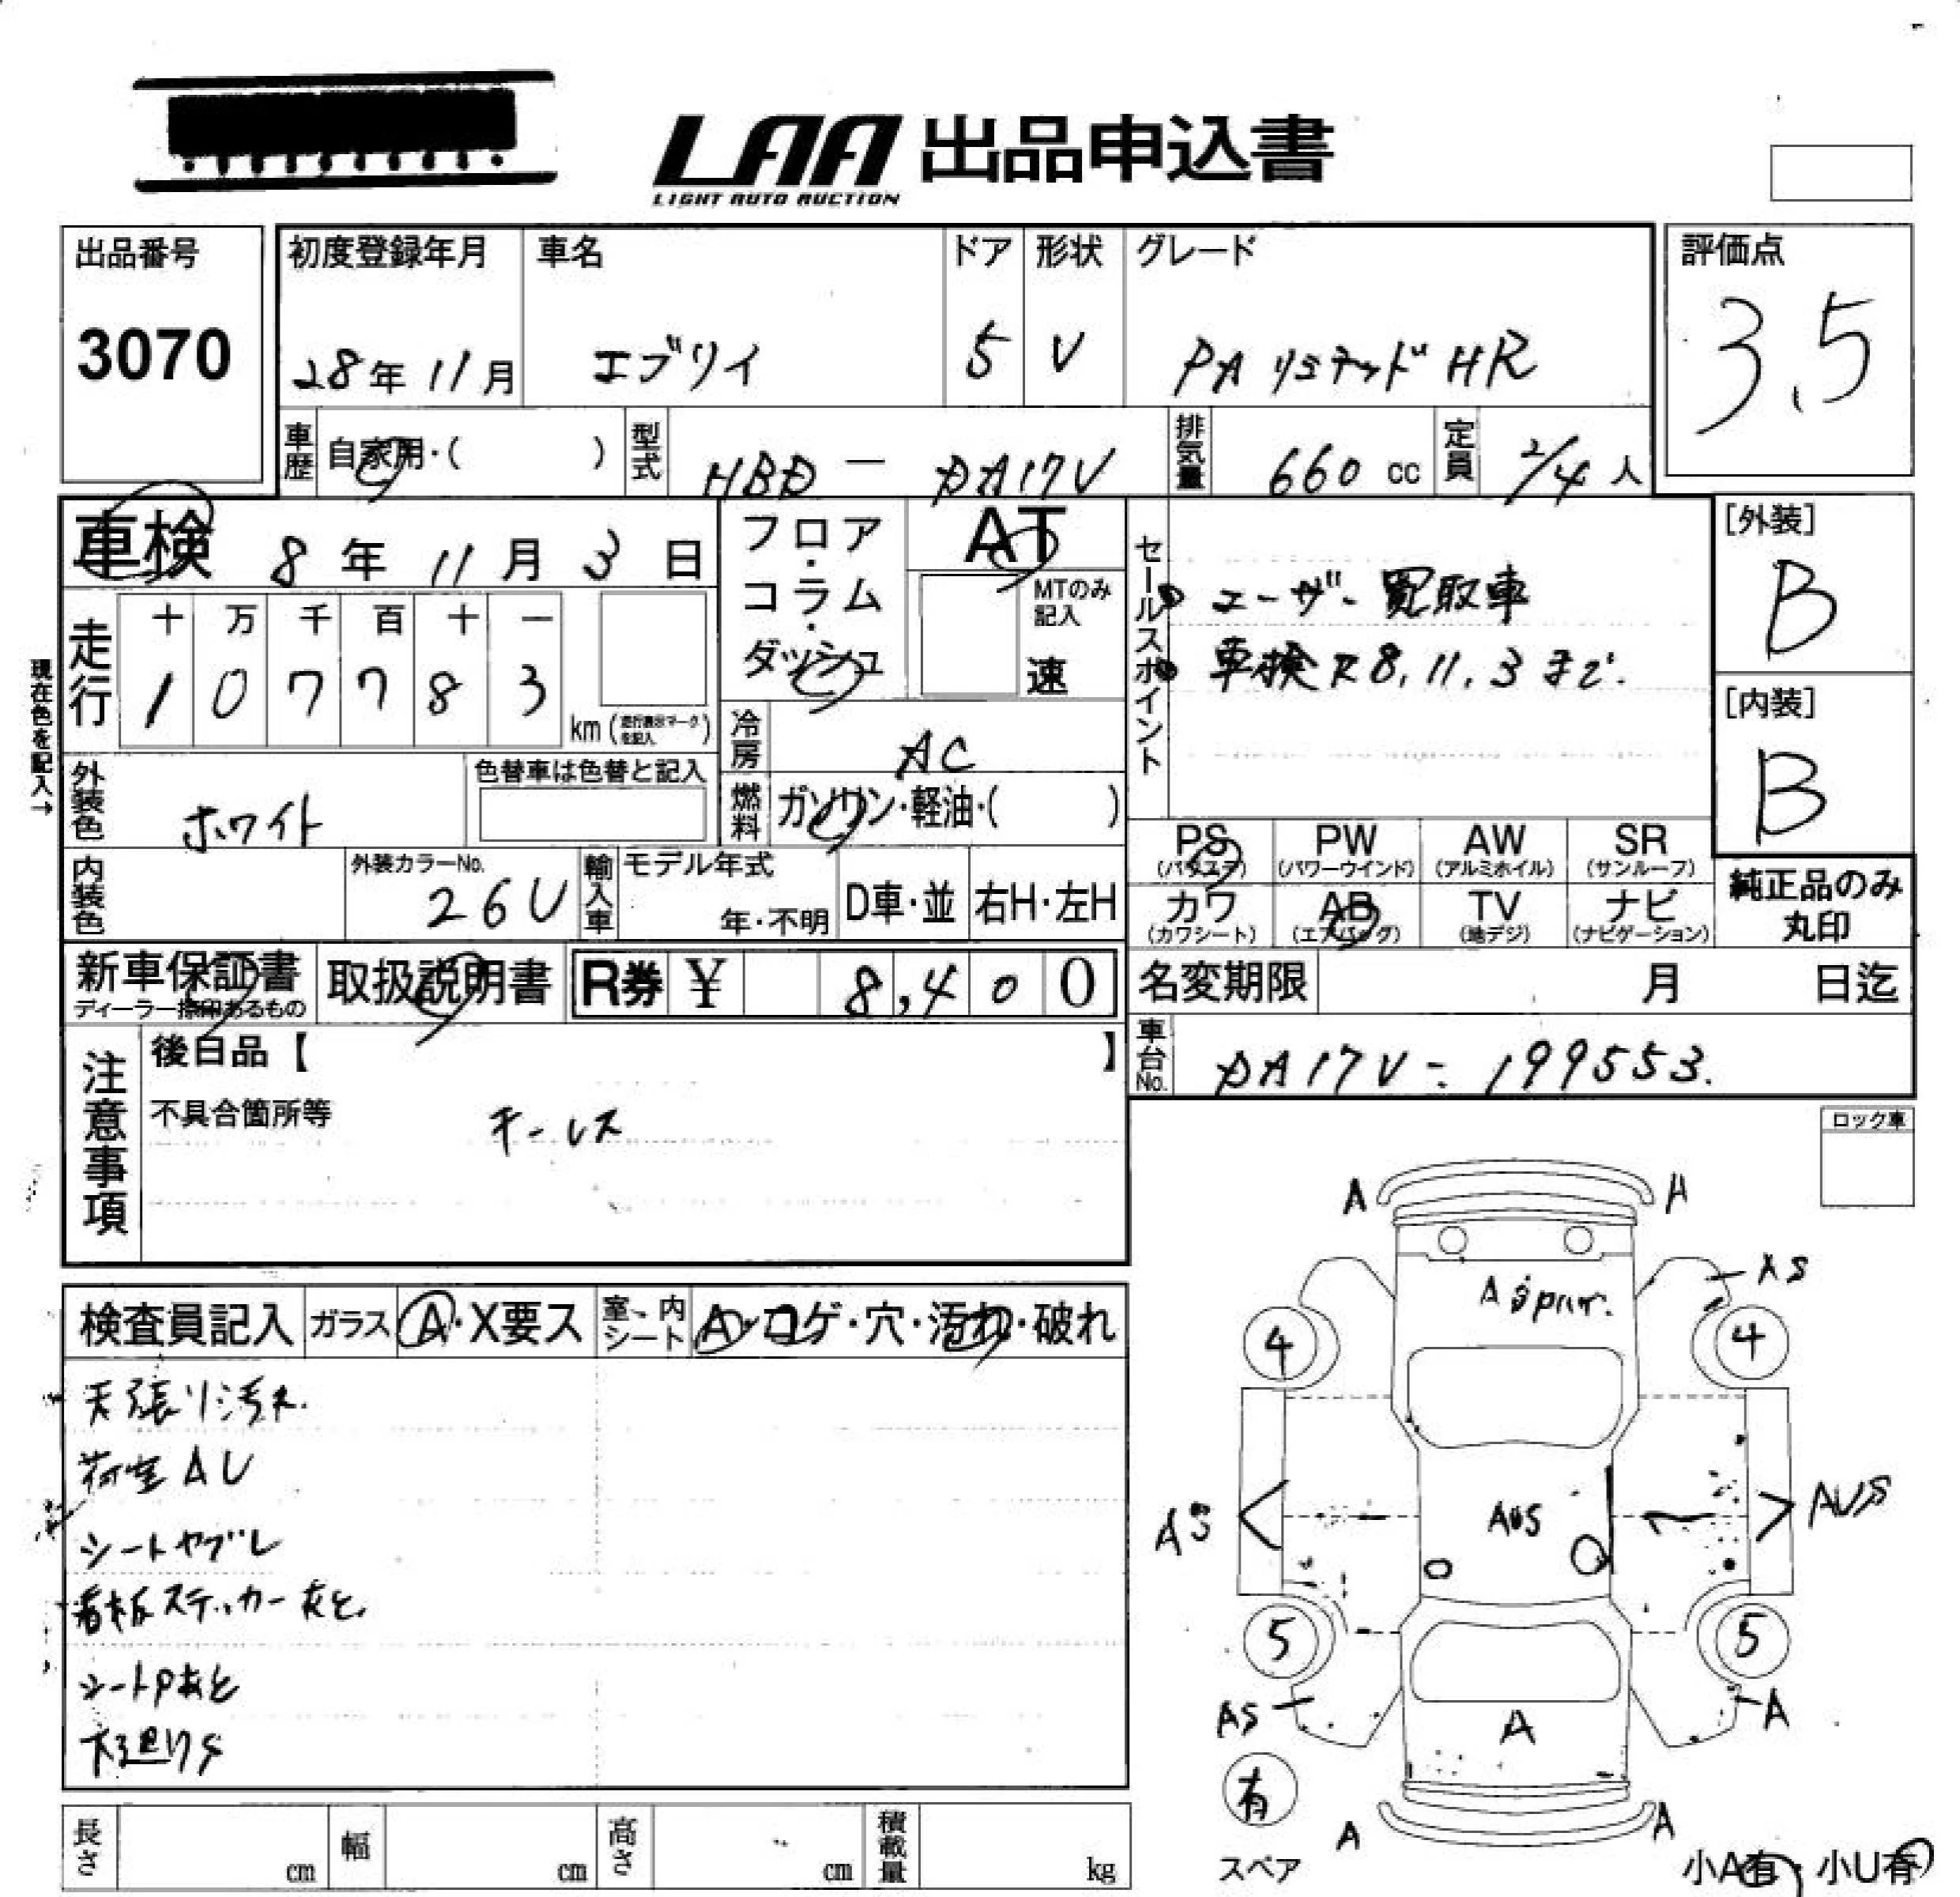 LAA 出品申込書
LIGHT AUTO AUCTION
出品番号
3070
初度登録年月
28年11月
車名
エブリイ
ドア
5
形状
V
グレード
PA リミテッド HR
評価点
3.5
車歴
自家用・( )
型式
HBD - DA17V
排気量
660 cc
定員
2/4 人
車検 8年 11月 3日
フロア・コラム・ダッシュ
AT
MTのみ記入
速
セールスポイント
ユーザー買取車
車検R8.11.3まで.
[外装]
B
[内装]
B
現在色を記入→
走行
十 万 千 百 十 一
1 0 7 7 8 3
km (走行表示マークを記入)
冷房
AC
外装色
ホワイト
色替車は色替と記入
燃料
ガソリン・軽油・( )
PS (パワステ)
PW (パワーウインド)
AW (アルミホイル)
SR (サンルーフ)
内装色
外装カラーNo.
26U
輸入車
モデル年式
年・不明
D車・並
右H・左H
カワ (カワシート)
AB (エアバッグ)
TV (地デジ)
ナビ (ナビゲーション)
純正品のみ丸印
新車保証書
ディーラー捺印あるもの
取扱説明書
R券 ¥ 8,400
名変期限 月 日迄
車台No.
DA17V - 199553.
注意事項
後日品【 】
不具合箇所等
キーレス
ロック車
検査員記入
ガラス
A・X要ス
室内シート
A・コゲ・穴・汚れ・破れ
天張り汚れ.
荷室AU
シートヤブレ
看板ステッカーあと.
シートPあと
下廻りS
A
AS
4
4
AS
AUS
AUS
5
5
AS
A
A
有
スペア
A
A
小A有・小U有
長さ cm
幅 cm
高さ cm
積載量 kg